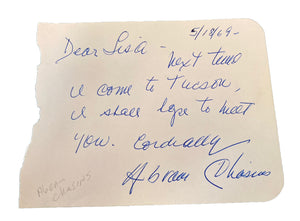 5/18/69-
Dear Lisa -
next time
I come to Tucson,
I shall hope to meet
you. Cordially
Abram Chasins
Abram
CHASINS